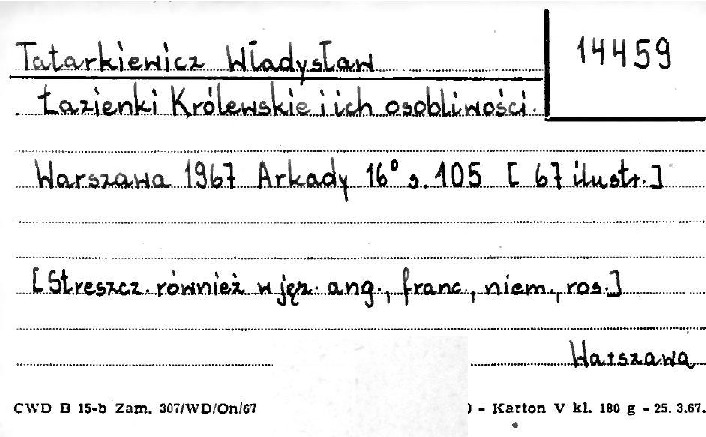 Tatarkiewicz Władysław
14459
Łazienki Królewskie i ich osobliwości.
Warszawa 1967 Arkady 16° s. 105 [67 ilustr.]
[Streszcz. również w jęz. ang., franc., niem., ros.]
Warszawa
CWD B 15-b Zam. 307/WD/On/67
) - Karton V kl. 180 g - 25. 3.67.